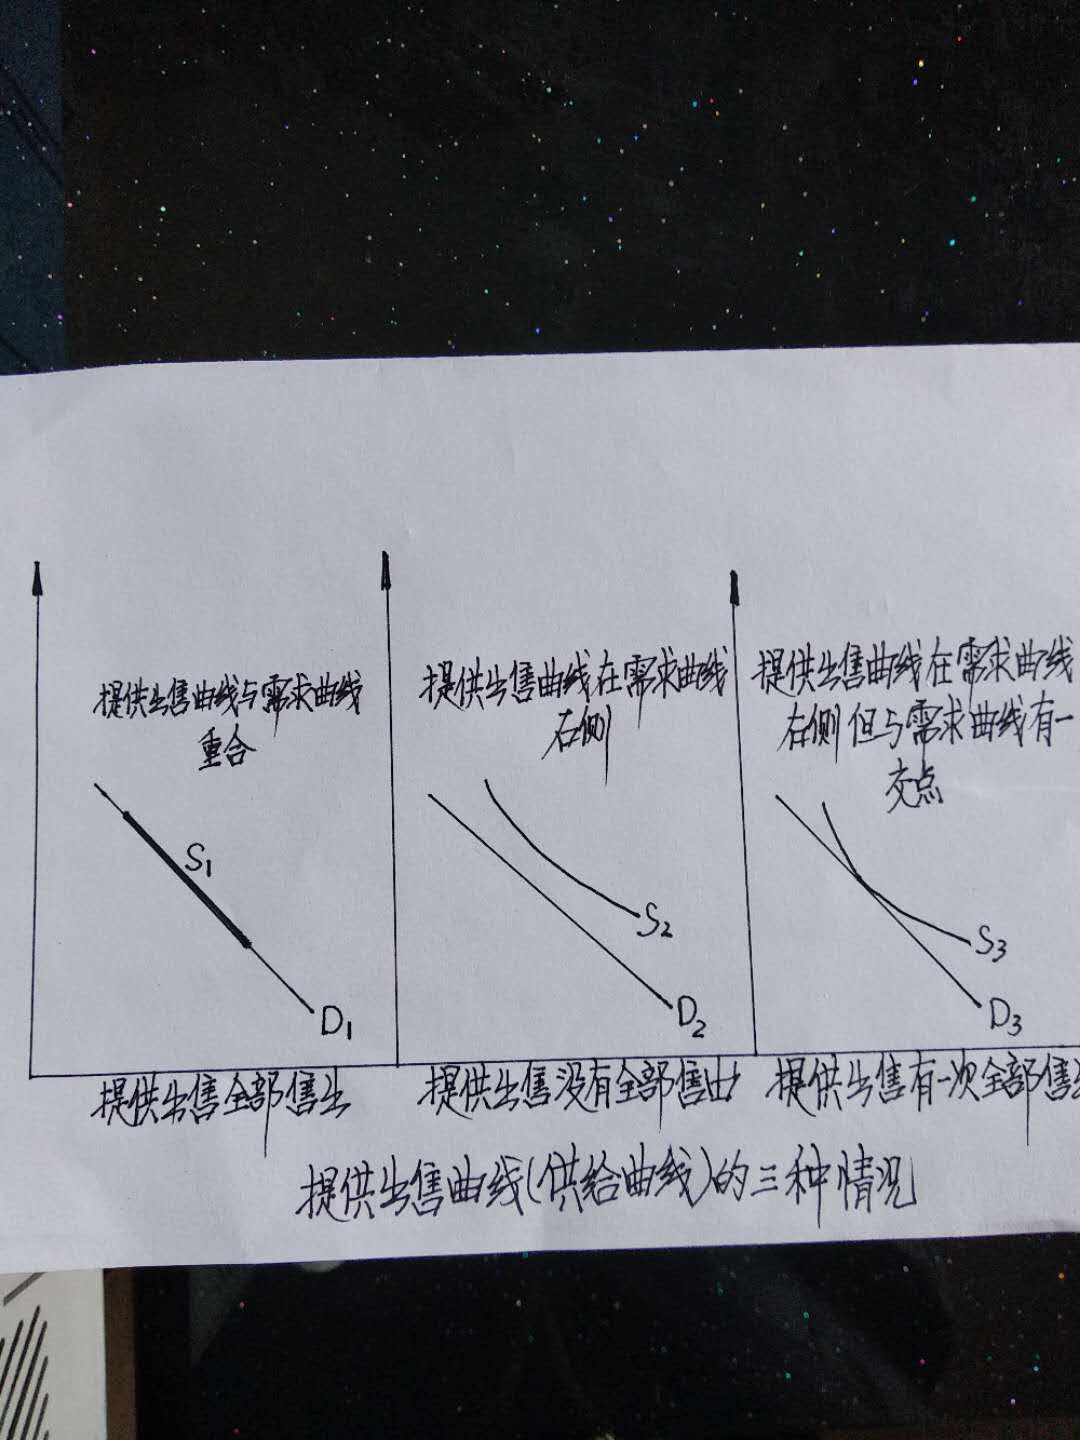 提供出售曲线与需求曲线
重合
S1
D1
提供出售全部售出
提供出售曲线在需求曲线
右侧
S2
D2
提供出售没有全部售出
提供出售曲线在需求曲线
右侧但与需求曲线有一
交点
S3
D3
提供出售有一次全部售
提供出售曲线(供给曲线)的三种情况